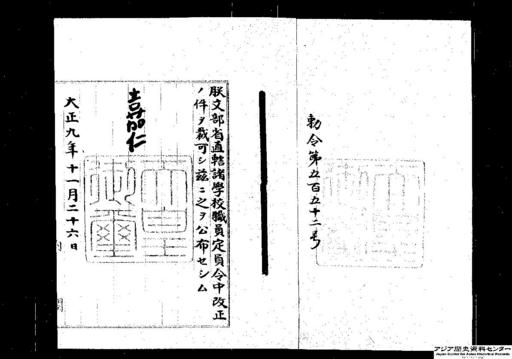 勅令第五百五十二号
朕文部省直轄諸學校職員定員令中改正
ノ件ヲ裁可シ茲ニ之ヲ公布セシム
嘉仁
大正九年十一月二十六日
アジア歴史資料センター
Japan Center for Asian Historical Records